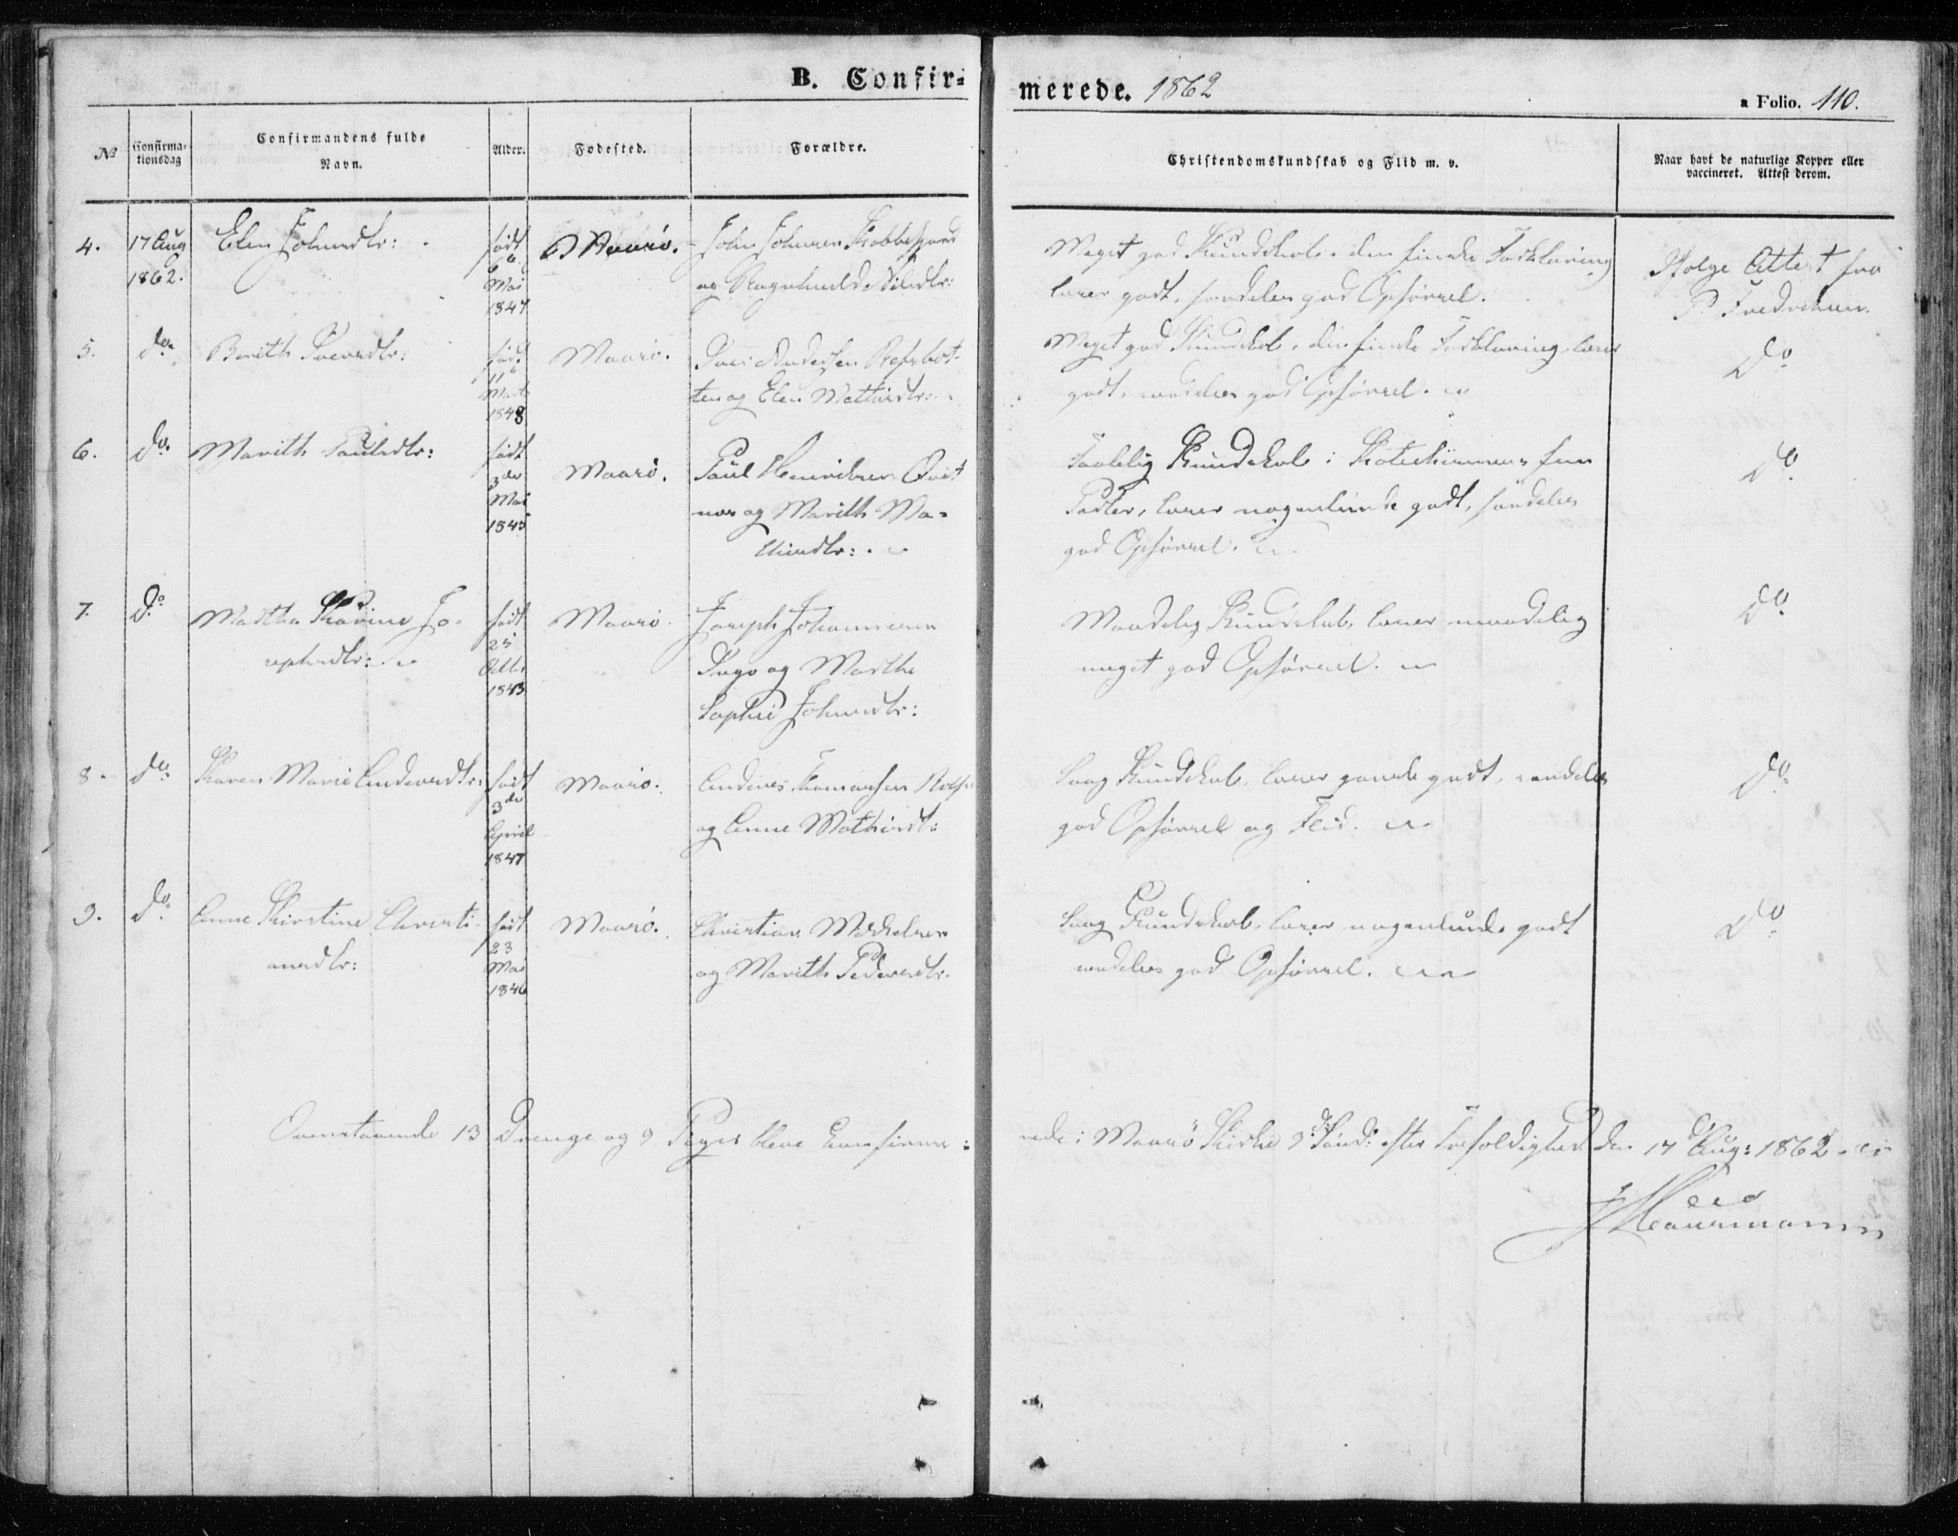 B. Confir=
merede. 1862
a Folio. 110.
№
Confirma-
tionsdag
Confirmandens fulde
Navn.
Alder.
Fødested.
Forældre.
Christendomskundskab og Flid m. v.
Naar havt de naturlige Kopper eller
vaccineret. Attest derom.
4. 17 Aug
1862.
Elen Johnsdtr:
født
6
Mai
1847
Maasø.
John Johnsen
og Ragnhild Nilsdtr:
Meget god Kundskab i den finske Forklaring
læser godt, sædeles god Opførsel.
Ifølge Attest fra
P. Fredriksen
5. do
Berith Iversdtr:
født
11
Marts
1848
Maasø.
Iver Andersen Refsbot-
ten og Elen Mathisdtr:
Meget god Kundskab i den finske Forklaring, læser
godt, sædeles god Opførsel.
Do
6. do
Marith Paulsdtr:
født
3de
Mai
1845
Maasø.
Paul Henriksen Qvit
næs og Marith Ma-
thisdtr:
Taalelig Kundskab i Katechismens fem
Parter, læser nogenlunde godt, sædeles
god Opførsel.
Do
7. Do
Martha Karine Jo-
sephsdtr:
født
25
Octbr
1843
Maasø
Joseph Johannesen
og Marthe
Sophie Johnsdtr:
Maadelig Kundskab, læser maadelig
meget god Opførsel.
Do
8. do
Karen Marie Andersdtr:
født
3de
April
1847
Maasø.
Anders Thomassen
og Anne Mathisdt:
Svag Kundskab, læser ganske godt, sædeles
god Opførsel og Flid.
Do
9. Do
Anne Kirstine Christi-
ansdtr:
født
23
Mai
1846
Maasø.
Christian Mikkelsen
og Marith Pedersdtr.
Svag Kundskab, læser nogenlunde godt
sædeles god Opførsel.
Do
Ovenstaaende 13 Drenge og 9 Piger bleve Confirme:
rede i Maasø Kirke 9 Sønd: efter Trefoldighed den 17 Aug: 1862.